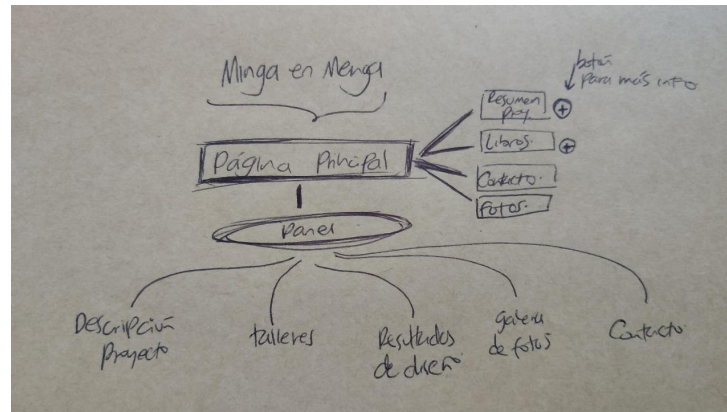 Minga en Menga
botón
para más info
Resumen
Proy.
Libros.
Página Principal
Contacto.
Fotos.
Panel
Descripción
Proyecto
talleres
Resultados
de diseño
galería
de fotos
Contacto